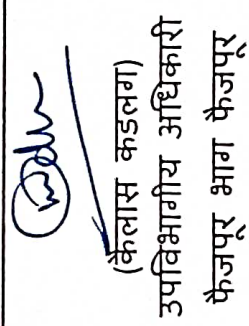 (कैलास कडलग)
उपविभागीय अधिकारी
फैजपूर भाग फैजपूर